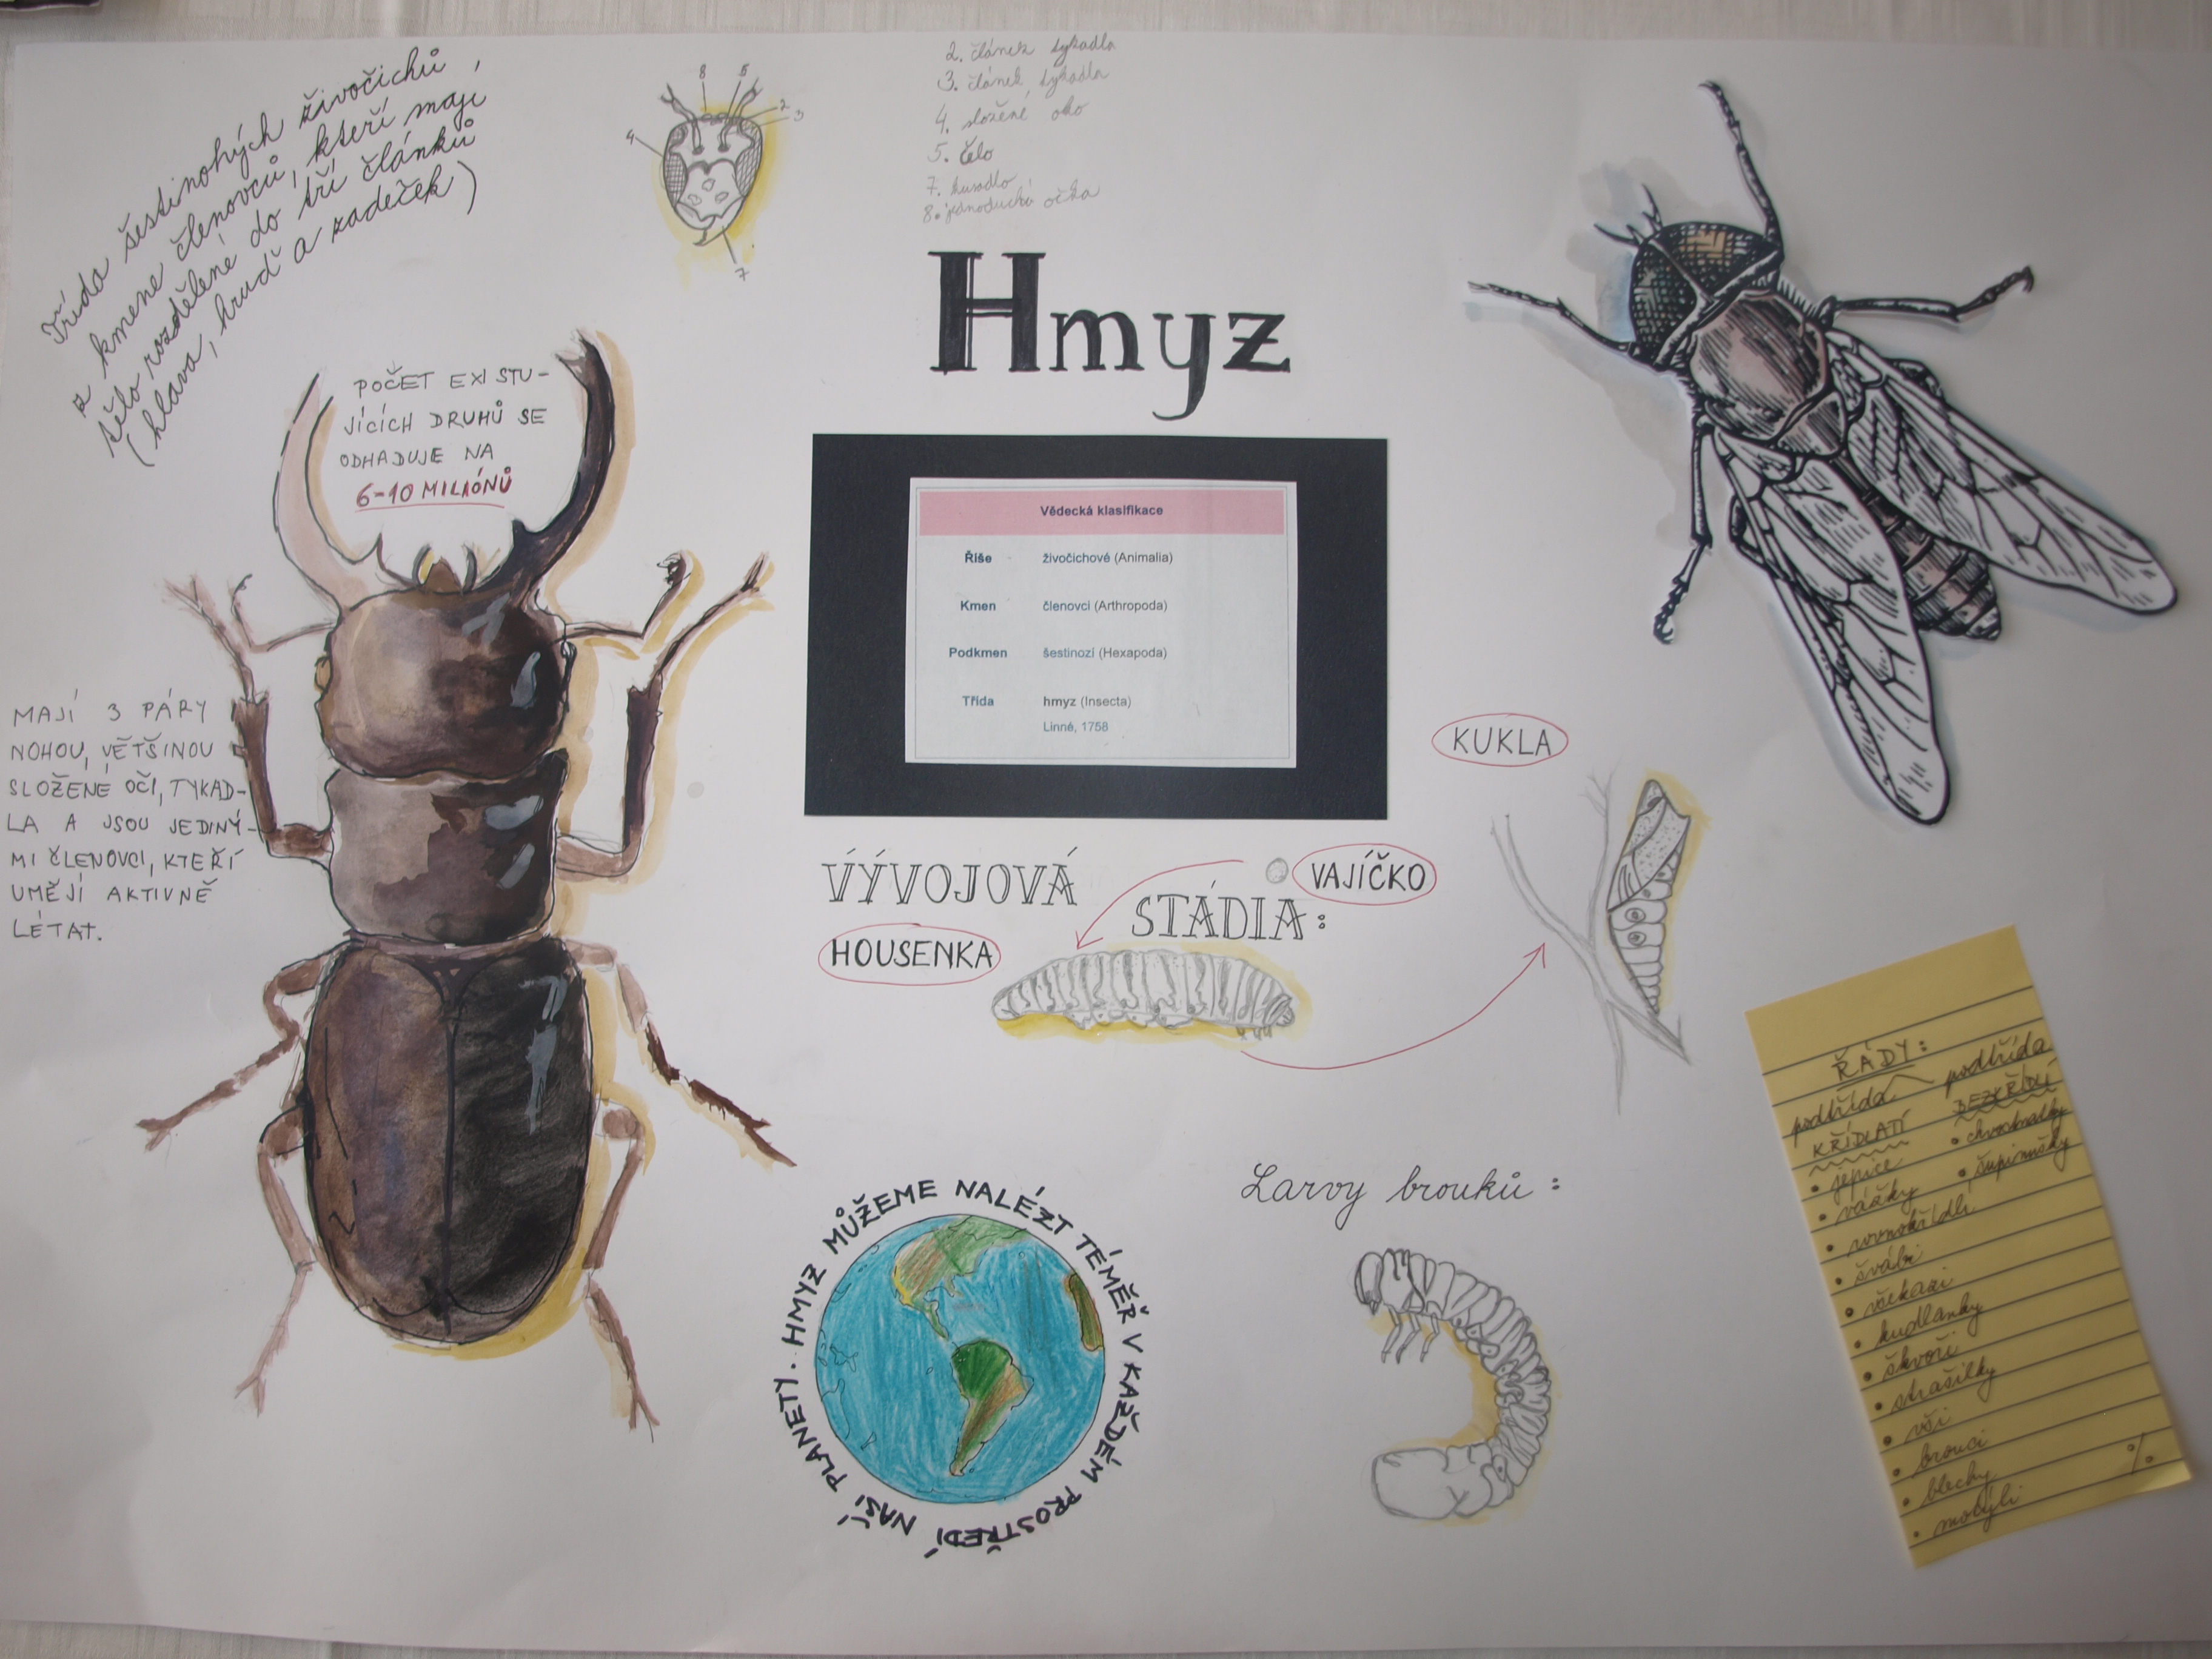 Třída šestinohých živočichů,
z kmene členovců, kteří mají
tělo rozdělené do tří článků
(hlava, hruď a zadeček)
8 6
2
3
4
7
2. článek tykadla
3. článek tykadla
4. složené oko
5. čelo
7. kusadlo
8. jednoduchá očka
Hmyz
POČET EXISTU-
JÍCÍCH DRUHŮ SE
ODHADUJE NA
6-10 MILIÓNŮ
Vědecká klasifikace
Říše živočichové (Animalia)
Kmen členovci (Arthropoda)
Podkmen šestinozí (Hexapoda)
Třída hmyz (Insecta)
Linné, 1758
MAJÍ 3 PÁRY
NOHOU, VĚTŠINOU
SLOŽENÉ OČI, TYKAD-
LA A JSOU JEDINÝ-
MI ČLENOVCI, KTEŘÍ
UMĚJÍ AKTIVNĚ
LÉTAT.
VÝVOJOVÁ
STÁDIA:
VAJÍČKO
HOUSENKA
KUKLA
Larvy brouků:
HMYZ MŮŽEME NALÉZT TÉMĚŘ V KAŽDÉM PROSTŘEDÍ NAŠÍ PLANETY.
ŘÁDY:
podtřída
KŘÍDLATÍ
• jepice
• vážky
• rovnokřídlí
• švábi
• všekazi
• kudlanky
• škvoři
• strašilky
• vši
• brouci
• blechy
• motýli
podtřída
BEZKŘÍDLÍ
• chvostnatky
• šupinušky
•/•